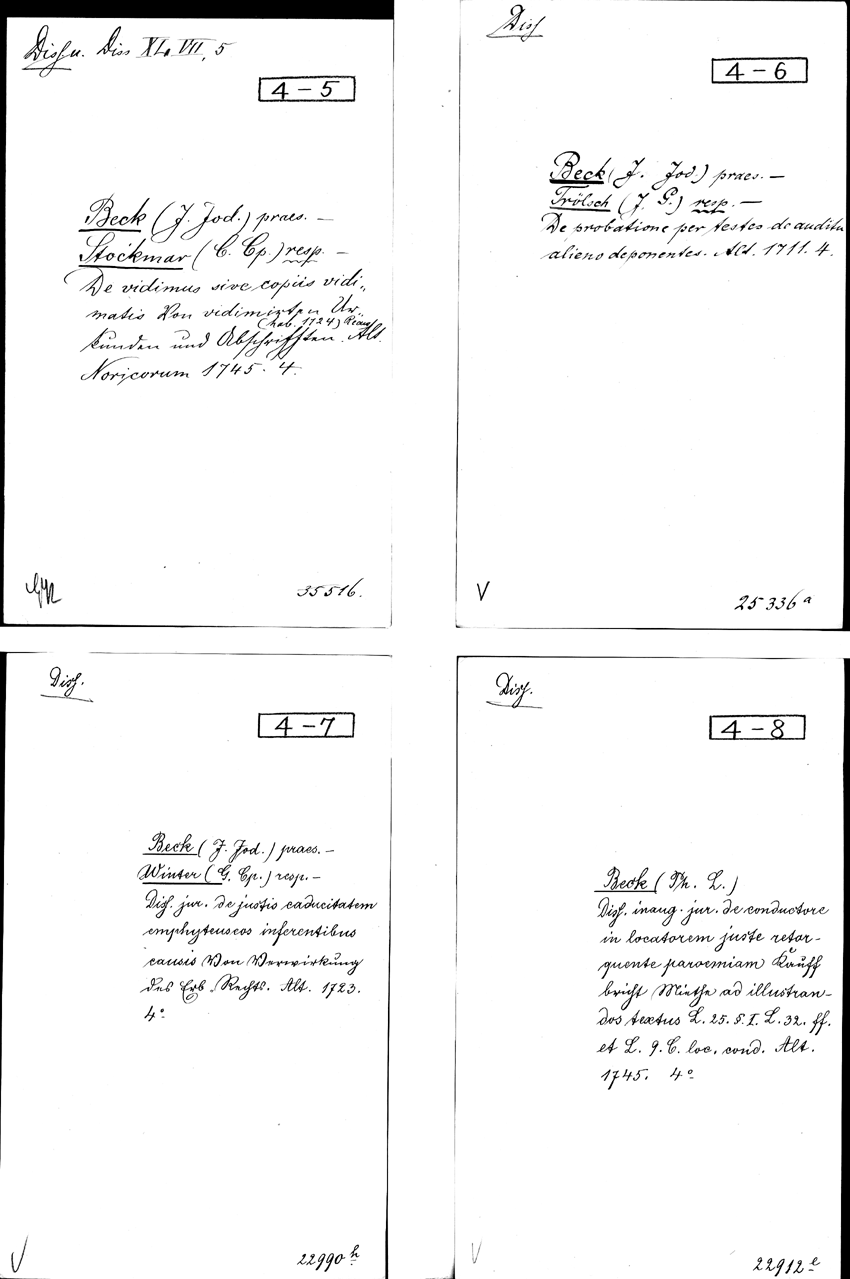 Diss u. Diss XLVII, 5
4-5
Beck (J. Jod.) praes. —
Stockmar (C. Cp.) resp. —
De vidimus sive copiis vidi„
matis Von vidimirten Ur„
(hab. 1724)
kunden und Abschrifften. Alt.
Noricorum 1745. 4.
35516.
Diss
4-6
Beck (J. Jod.) praes. —
Frölsch (J. G.) resp. —
De probatione per testes de auditu
alieno deponentes. Alt. 1711. 4.
V
25336a
Diss.
4-7
Beck (J. Jod.) praes. —
Winter (G. Cp.) resp. —
Diss. jur. de justis caducitatem
emphyteuseos inferentibus
causis Von Verwirkung
des Erb-Rechts. Alt. 1723.
4°
V
22990h
Diss.
4-8
Beck (Ph. L.)
Diss. inaug. jur. de conductore
in locatorem juste retor-
quente paroemiam Kauff
bricht Miethe ad illustran-
dos textus L. 25. §. I. L. 32. ff.
et L. 9. C. loc. cond. Alt.
1745. 4°
V
22912e